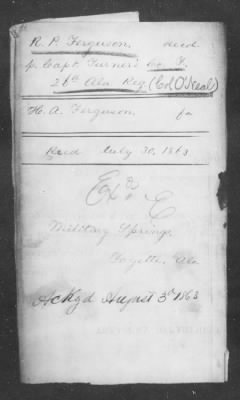 R. P. Ferguson. decd.
p. Capt. Turner's Co. I.
26th Ala Reg (Col O'Neal)
H. A. Ferguson. fa
Recd July 30, 1863
Exd. C
Military Springs,
Fayette, Ala
Ackgd August 3rd 1863